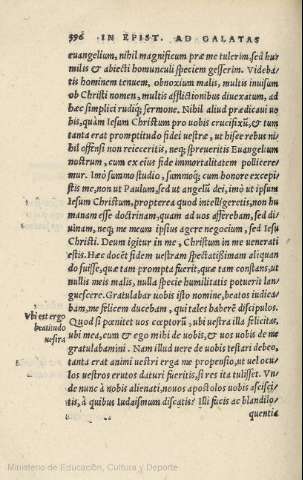 396 IN EPIST. AD GALATAS
euangelium, nihil magnificum præ me tulerim, sed hu⸗
milis & abiecti homunculi speciem gesserim. Videba⸗
tis hominem tenuem, obnoxium malis, multis inuisum
ob Christi nomen, multis afflictionibus diuexatum, ad
hæc simplici rudiq; sermone. Nihil aliud prædicaui uo
bis, quàm Iesum Christum pro uobis crucifixũ, & tum
tanta erat promptitudo fidei uestræ, ut hisce rebus ni⸗
hil offensi non reieceritis, neq; spreueritis Euangelium
nostrum, cum ex eius fide immortalitatem pollicere⸗
mur. Imò summo studio, summoq; cum honore excepi⸗
stis me, non ut Paulum, sed ut angelũ dei, imò ut ipsum
Iesum Christum, propterea quod intelligeretis, non hu
manam esse doctrinam, quam ad uos afferebam, sed di⸗
uinam, neq; me meum ipsius agere negocium, sed Iesu
Christi. Deum igitur in me, Christum in me uenerati
estis. Hæc docẽt fidem uestram spectatißimam aliquan
do fuisse, quæ tam prompta fuerit, quæ tam constans, ut
nullis meis malis, nulla specie humilitatis potuerit lan⸗
guescere. Gratulabar uobis isto nomine, beatos iudica⸗
bam, me felicem ducebam, qui tales haberẽ discipulos.
Vbi est ergo
beatitudo
uestra
Quod si pœnitet uos cœptorũ, ubi uestra illa felicitas,
ubi mea, cum & ego mihi de uobis, & uos uobis de me
gratulabamini. Nam illud uere de uobis testari debeo,
tanta erat animi uestri erga me propensio, ut uel ocu⸗
los uestros erutos daturi fueritis, si res ita tulisset. Vn⸗
de nunc à nobis alienati, nouos apostolos uobis asciscí⸗
tis, à quibus Iudaismum discatis? Illi fucis ac blandilo⸗
quentiæ
Ministerio de Educación, Cultura y Deporte